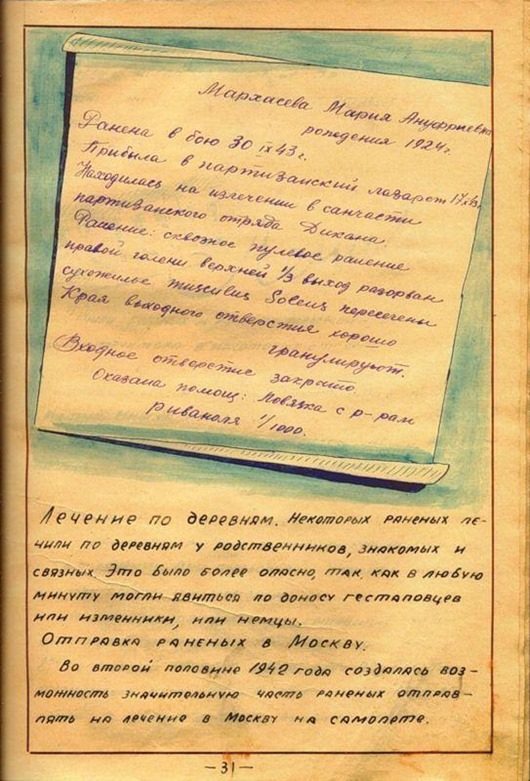 Мархасева Мария Ануфриевна
рождения 1924 г.
Ранена в бою 30 IX 43 г.
Прибыла в партизанский лазарет 17 X 43
Находилась на излечении в санчасти
партизанского отряда Дикана.
Ранение: сквозное пулевое ранение
правой голени верхней 1/3 выход разорван
сухожилье Soleus пересечены
Края выходного отверстия хорошо
гранулируют.
Входное отверстие закрыто
Оказана помощ: Повязка с р-рам
риваноля 1/1000.
Лечение по деревням. Некоторых раненых ле-
чили по деревням у родственников, знакомых и
связных. Это было более опасно, так, как в любую
минуту могли явиться по доносу гестаповцев
или изменники, или немцы.
Отправка раненых в Москву.
Во второй половине 1942 года создалась воз-
можность значительную часть раненых отправ-
лять на лечение в Москву на самолете.
– 31 –